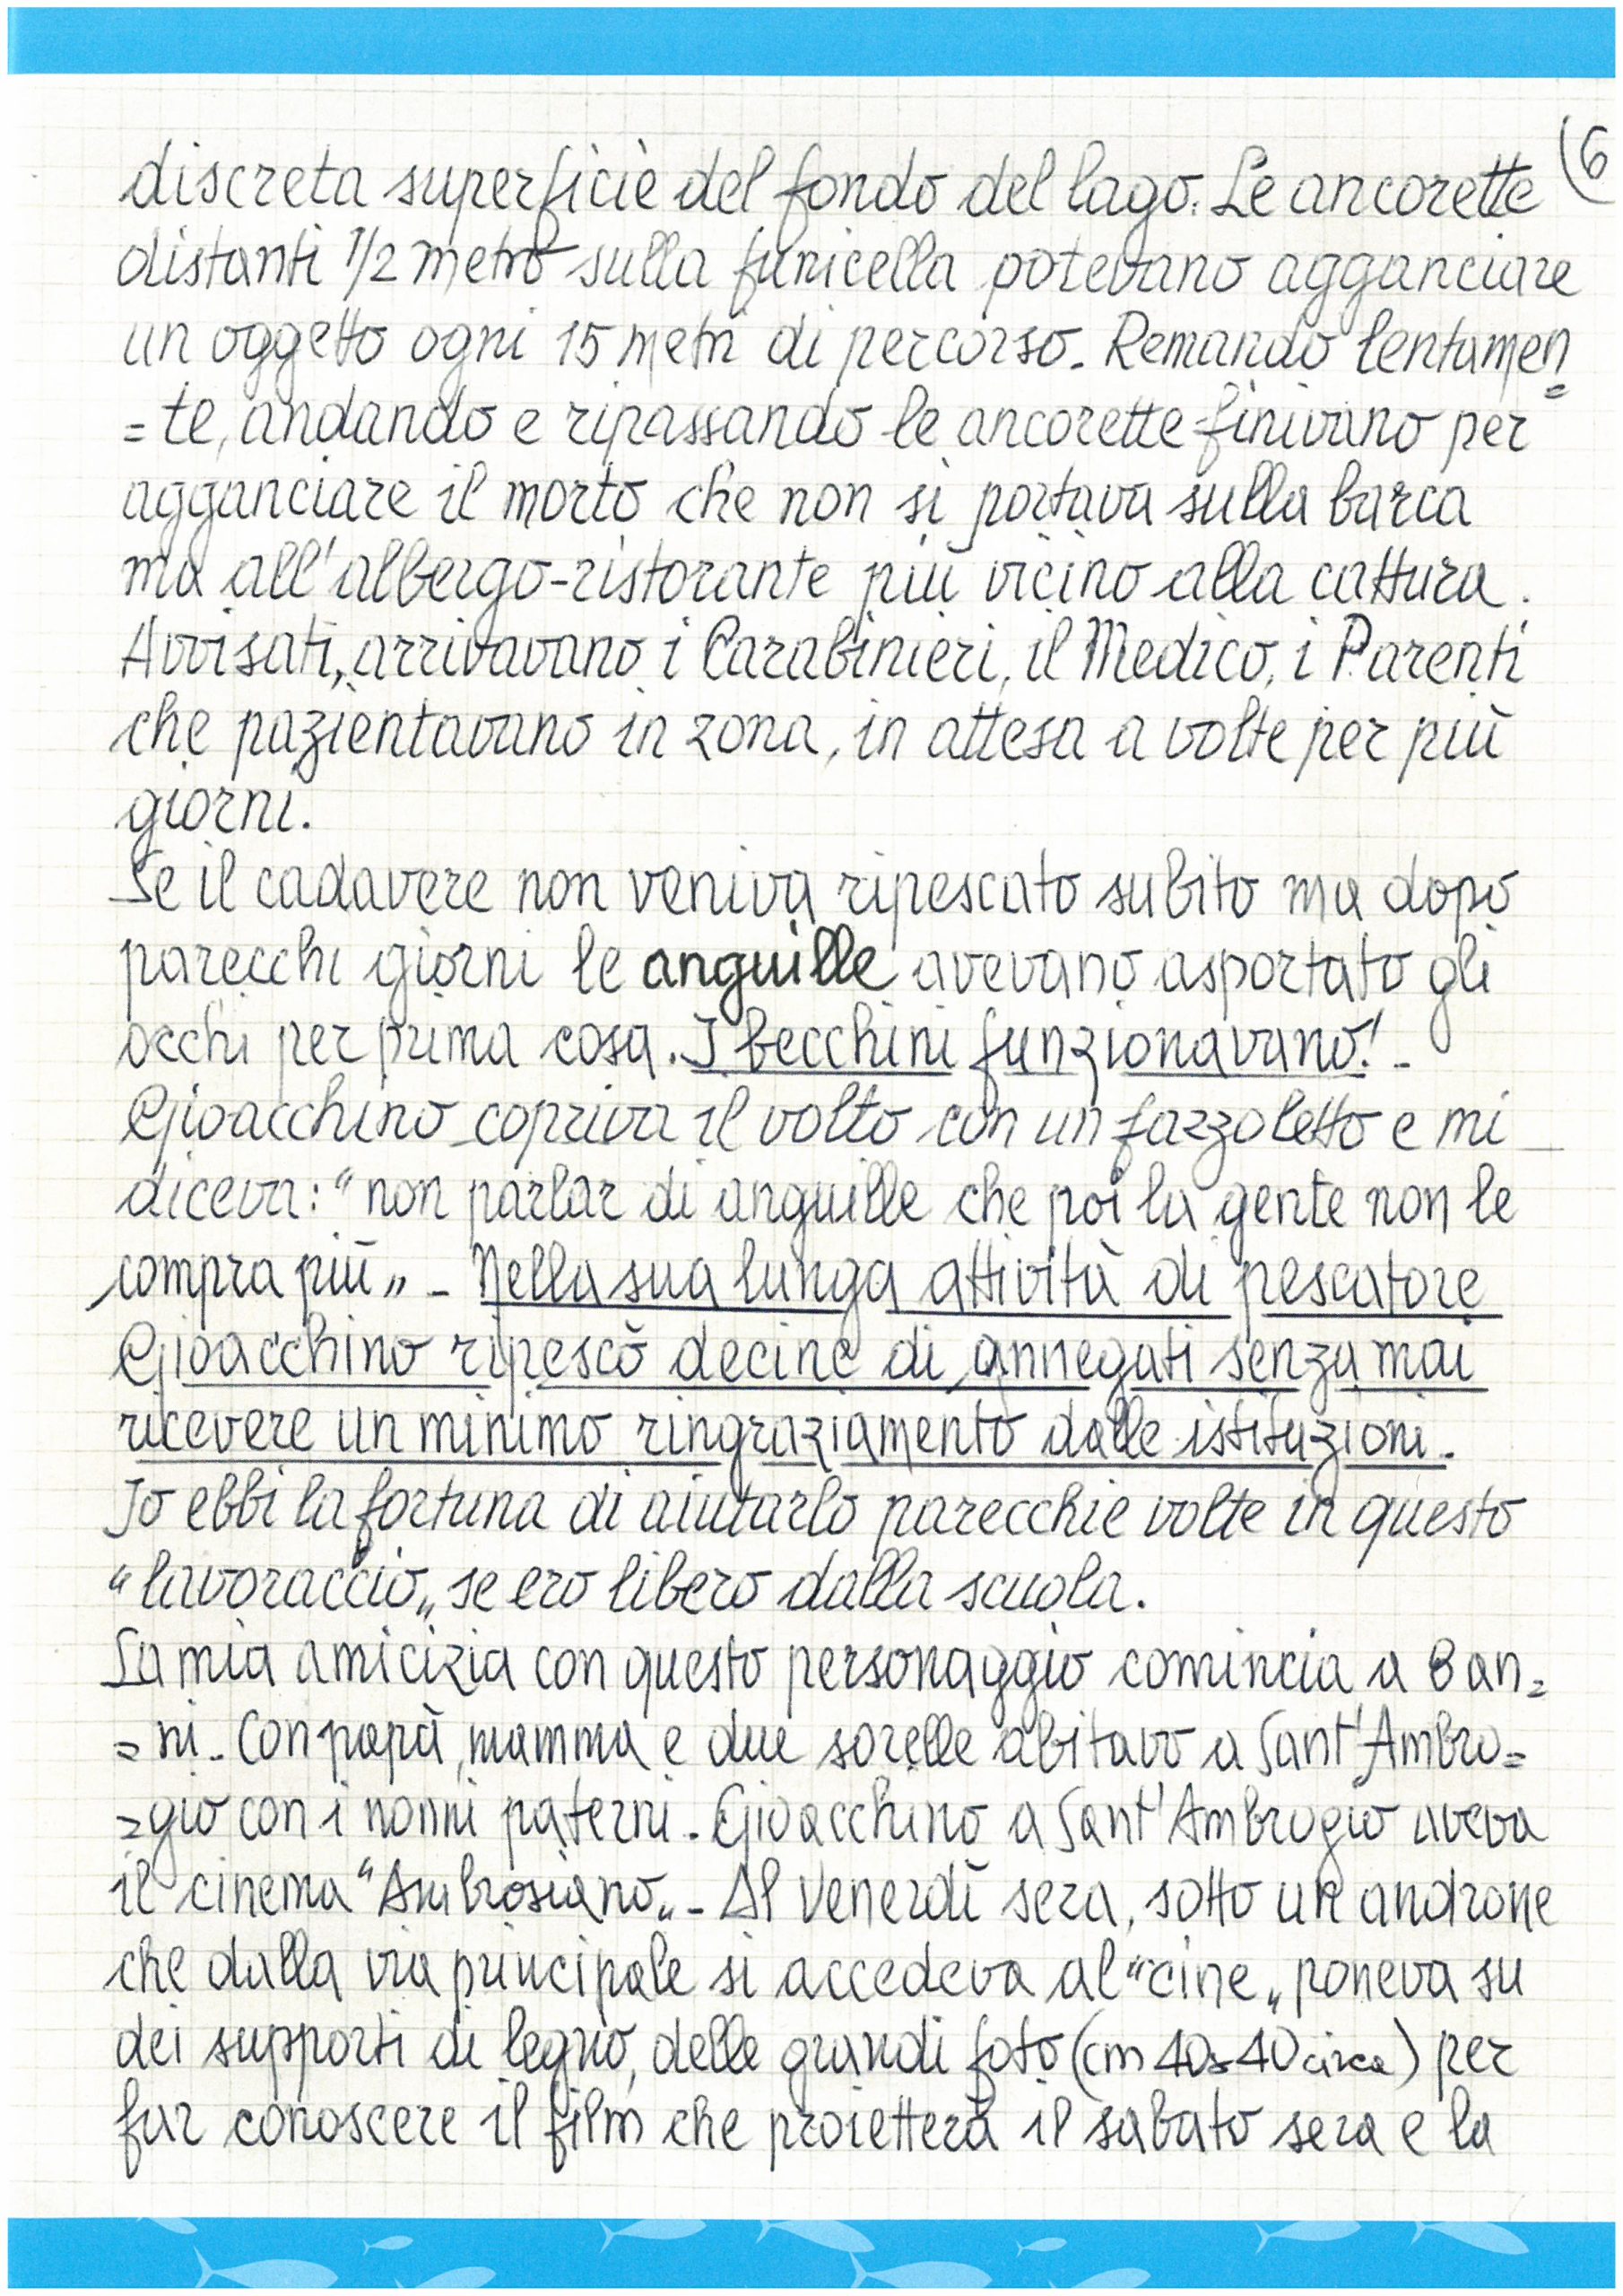 6
discreta superficie del fondo del lago. Le ancorette
distanti 1/2 metro sulla funicella potevano agganciare
un oggetto ogni 15 metri di percorso. Remando lentamen=
=te, andando e ripassando le ancorette finivano per
agganciare il morto che non si portava sulla barca
ma all'albergo-ristorante più vicino alla cattura.
Avvisati, arrivavano i Carabinieri, il Medico, i Parenti
che pazientavano in zona, in attesa a volte per più
giorni.
Se il cadavere non veniva ripescato subito ma dopo
parecchi giorni le anguille avevano asportato gli
occhi per prima cosa. I becchini funzionavano! -
Gioacchino copriva il volto con un fazzoletto e mi
diceva: "non parlar di anguille che poi la gente non le
compra più" - Nella sua lunga attività di pescatore
Gioacchino ripescò decine di annegati senza mai
ricevere un minimo ringraziamento dalle istituzioni.
Io ebbi la fortuna di aiutarlo parecchie volte in questo
"lavoraccio" se ero libero dalla scuola.
La mia amicizia con questo personaggio comincia a Ban=
=ni. Con papà, mamma e due sorelle abitavo a Sant'Ambro=
=gio con i nonni paterni. Gioacchino a Sant'Ambrogio aveva
il cinema "Ambrosiano" - Al Venerdì sera, sotto un androne
che dalla via principale si accedeva al "cine" poneva su
dei supporti di legno, delle grandi foto (cm 40x40 circa) per
far conoscere il film che proietterà il sabato sera e la